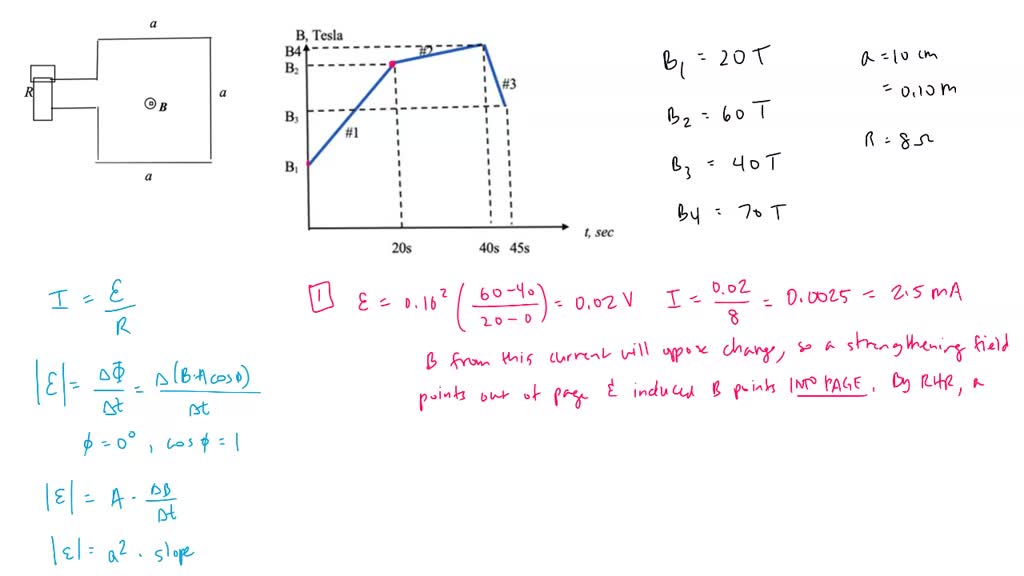 a
R
B
a
a
B, Tesla
B4
B2
B3
B1
#1
#2
#3
20s
40s 45s
t, sec
B1 = 20 T
B2 = 60 T
B3 = 40 T
B4 = 70 T
a = 10 cm
= 0.10 m
R = 8 Ω
I = ε / R
|ε| = ΔΦ / Δt = Δ(B·A cos φ) / Δt
φ = 0°, cos φ = 1
|ε| = A · ΔB / Δt
|ε| = a² · slope
1 ε = 0.10² (60-40 / 20-0) = 0.02 V I = 0.02 / 8 = 0.0025 = 2.5 mA
B from this current will oppose change, so a strengthening field
points out of page & induced B points INTO PAGE. By RHR, a